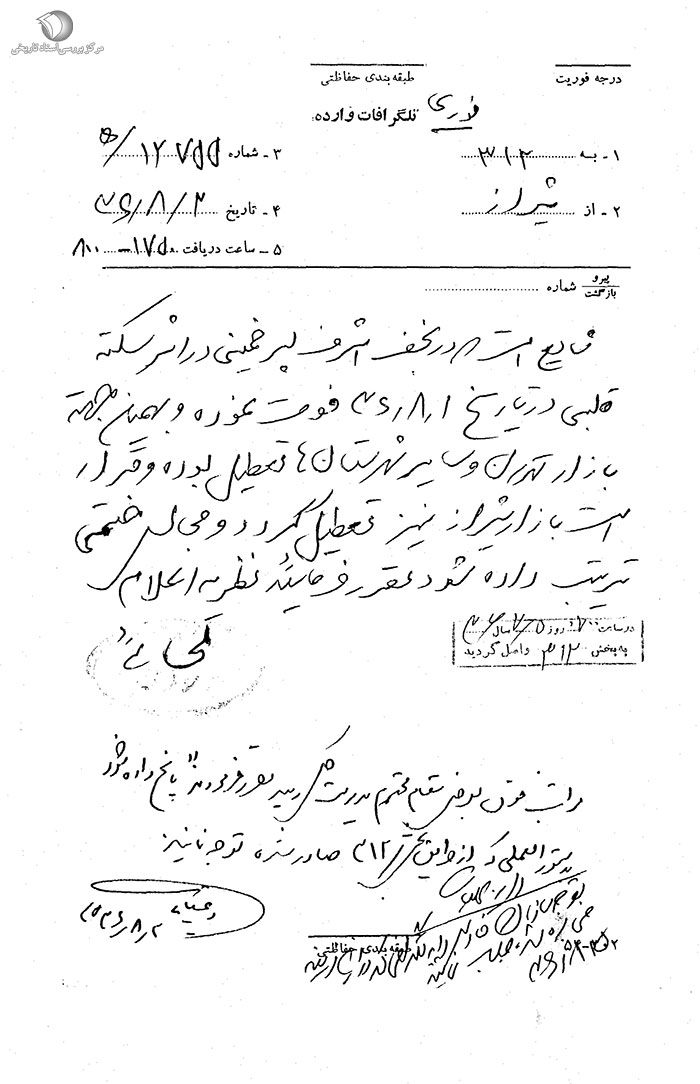 مرکز بررسی اسناد تاریخی
درجه فوریت
طبقه‌بندی حفاظتی
فوری
تلگرافات وارده:
۱ـ به ۳۱۲
۳ـ شماره ۱۲۷۵۵/ه
۲ـ از شیراز
۴ـ تاریخ ۳۶/۸/۲
۵ـ ساعت دریافت ۱۷۵۰ـ ۸۰۰
پیرو
بازگشت
شماره
شایع است در نجف اشرف پسر خمینی در اثر سکته
قلبی در تاریخ ۳۶٫۸٫۱ فوت نموده و بهمین جهة
بازار تهران و سایر شهرستان‌ها تعطیل بوده و قرار
است بازار شیراز نیز تعطیل گردد و مجالس ختمی
ترتیب داده شود مقرر فرمائید نظریه اعلام
در ساعت روز سال
به بخش ۳۱۲ واصل گردید
مراتب فوق بعرض مقام محترم مدیریت کل رسید مقرر فرمودند پاسخ داده شود
دستورالعملی که از طریق بخش ۳۱۲ صادر شده توجه نمایند
۲۵۳۶٫۸٫۲
طبقه‌بندی حفاظتی: